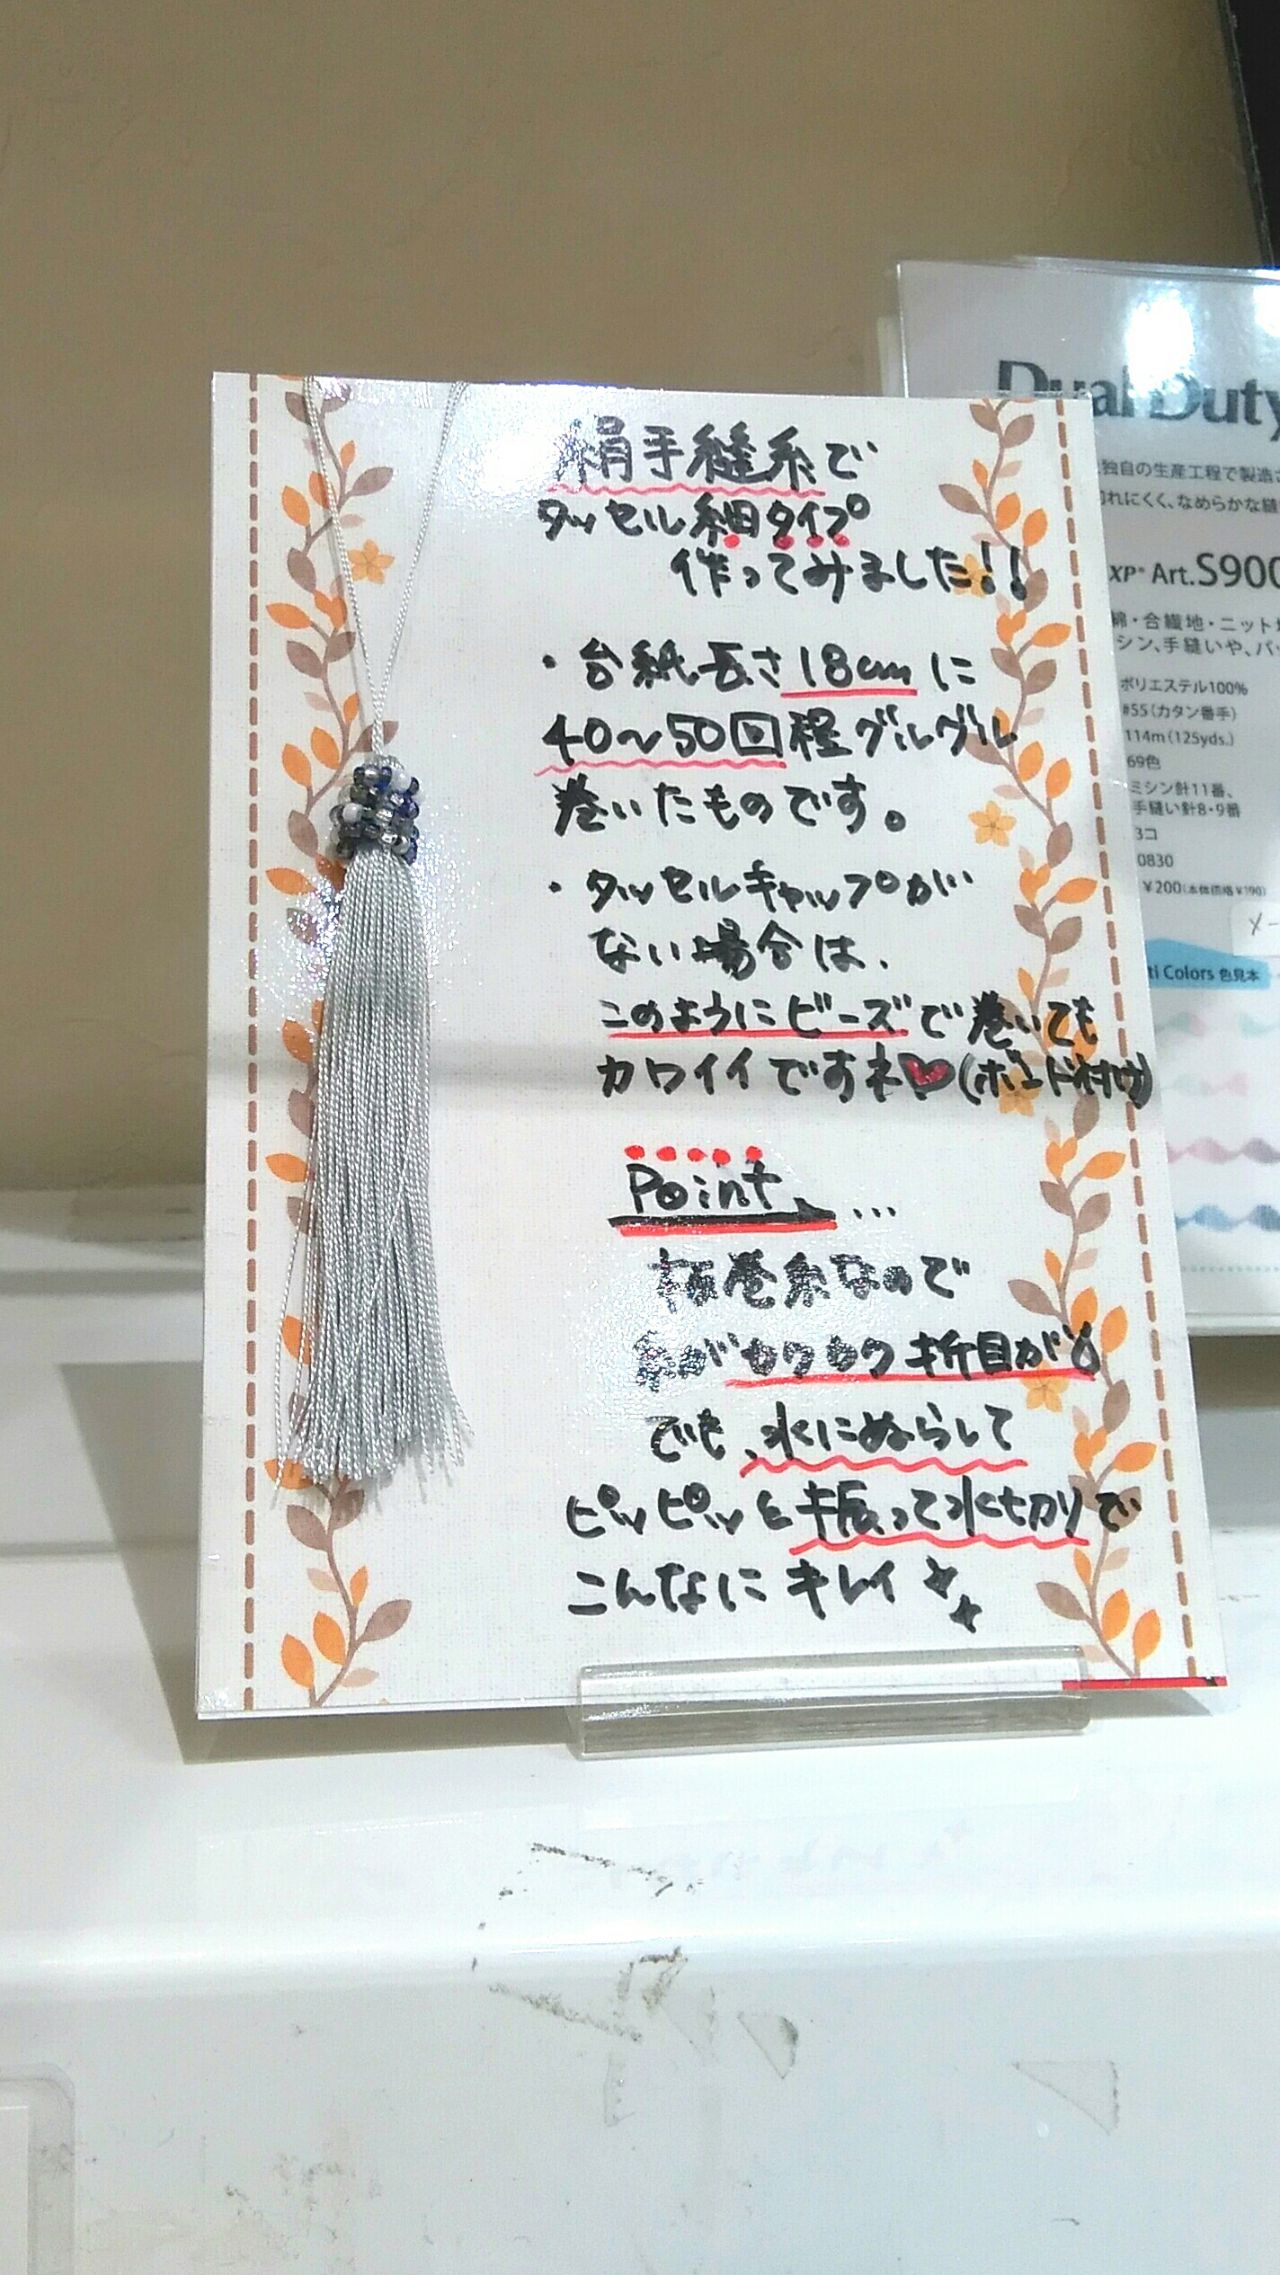 絹手縫糸で
タッセル細タイプ
作ってみました!!
・台紙長さ18cmに
40〜50回程グルグル
巻いたものです。
・タッセルキャップが
ない場合は、
このようにビーズで巻いても
カワイイですネ♥(ボンド付け)
Point...
板巻糸なので
糸がカクカク折目が
でも、水にぬらして
ピッピッと振って水切りで
こんなにキレイ
Dual Duty
独自の生産工程で製造
れにくく、なめらかな縫
XP® Art.S900
綿・合繊地・ニット
シン、手縫いや、パッ
ポリエステル100%
#55(カタン番手)
114m(125yds.)
69色
ミシン針11番、
手縫い針8・9番
3コ
0830
¥200(本体価格¥190)
メー
ti Colors 色見本